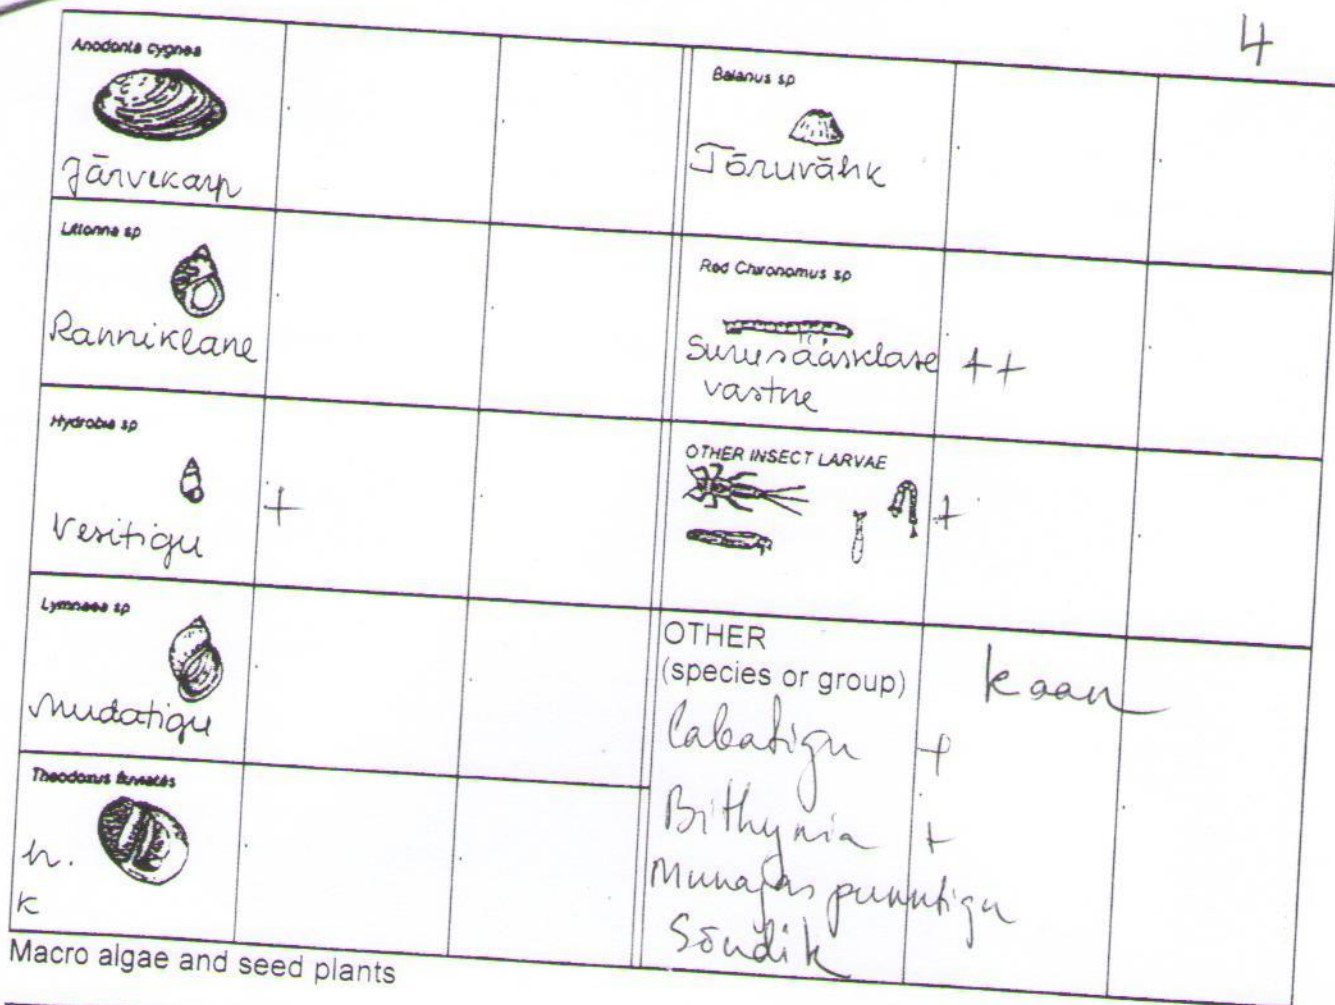 4
Anodonta cygnea
Järvekarp
Balanus sp
Tõruvähk
Littorina sp
Ranniklane
Red Chironomus sp
Surusääsklase ++
vastne
Hydrobia sp
Vesitigu +
OTHER INSECT LARVAE
+
Lymnaea sp
Mudatigu
OTHER
(species or group) kaan
Labatigu +
Bithynia +
Munajas punntigu
Sõudik
Theodoxus fluviatilis
k
Macro algae and seed plants